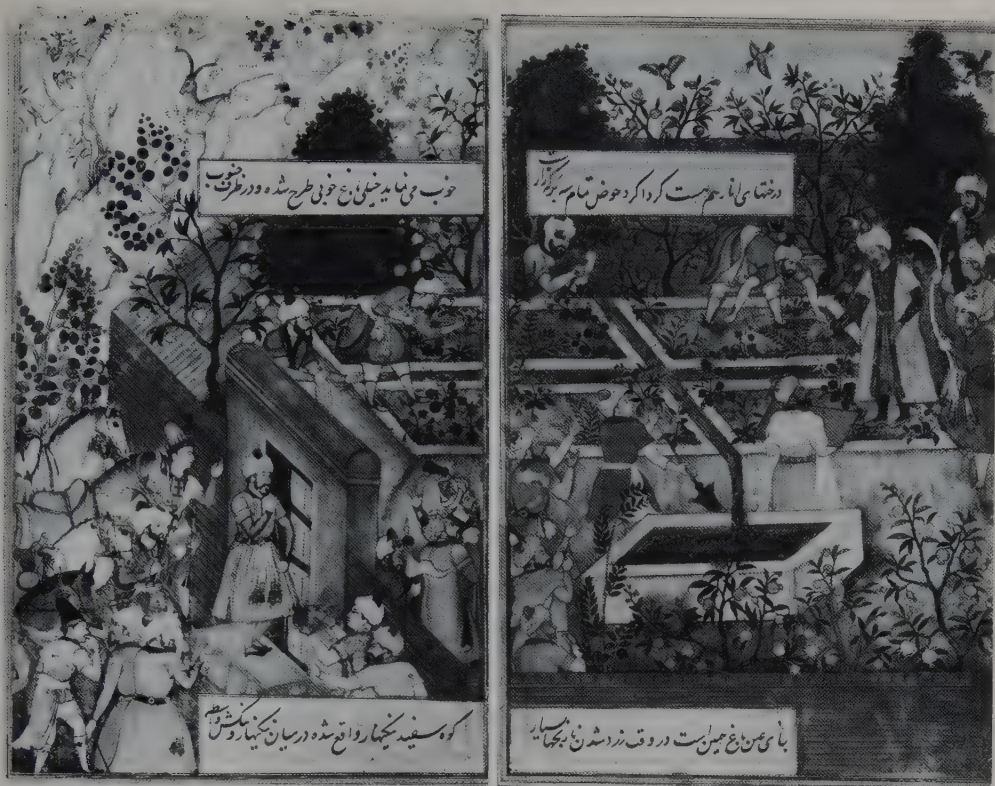 درختهای انار هم هست گرداگرد حوض تمام سه برگه زار است
جای عین باغ همین است در وقت زرد شدن نارنجها بسیار
خوب می نماید خیلی باغ خوبی طرح شده و در طرف جنوب
کوه سفید نیکنهار واقع شده در میان نیکنهار و بنگش واسطه